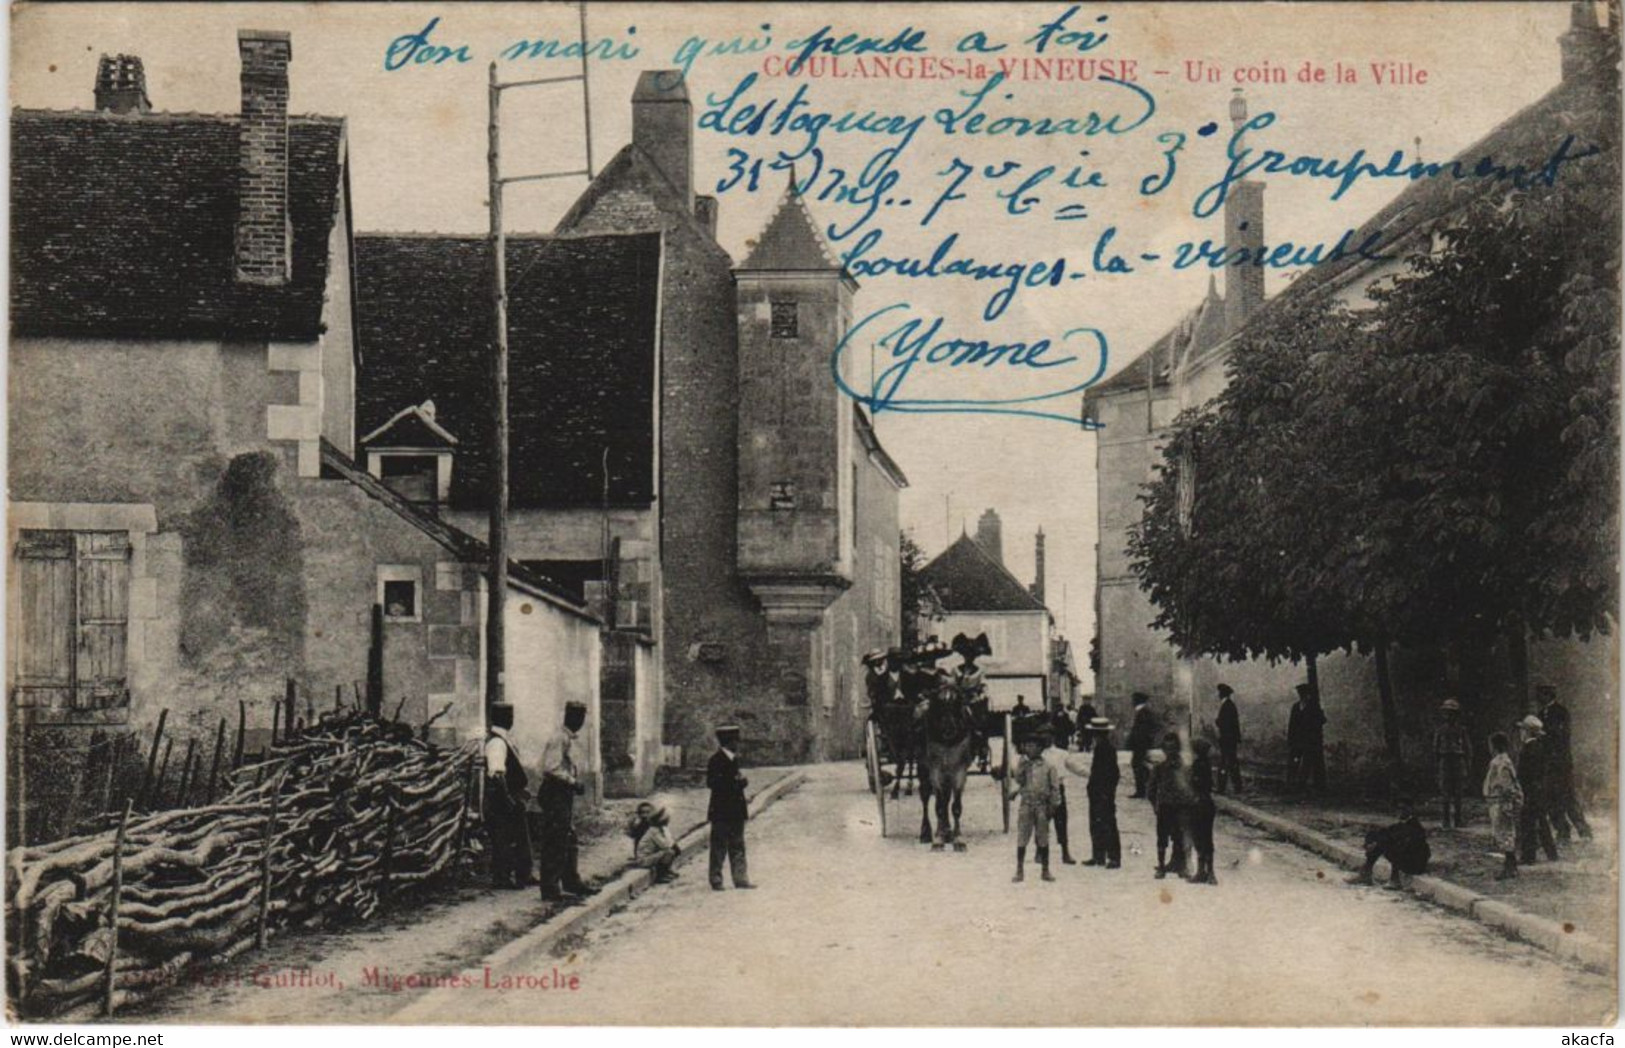 ton mari qui pense a toi
COULANGES-la-VINEUSE - Un coin de la Ville
Lestoquoy Léonard
31e 7e Cie 3e Groupement
Coulanges-la-vineuse
Yonne
Guillot, Migennes-Laroche
akacfa
akacfa.com